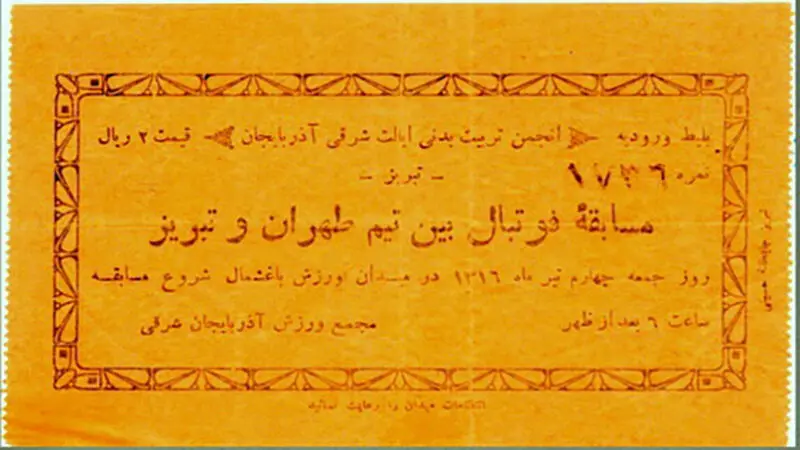 بلیط ورودیه انجمن تربیت بدنی ایالت شرقی آذربایجان قیمت ۲ ریال
نمره ۱۷۳۶ - تبریز -
مسابقهٔ فوتبال بین تیم طهران و تبریز
روز جمعه چهارم تیر ماه ۱۳۱۶ در میدان ورزش باغشمال شروع مسابقه
ساعت ۶ بعد از ظهر مجمع ورزش آذربایجان شرقی
انتظامات میدان را رعایت نمائید
تبریز چاپخانه